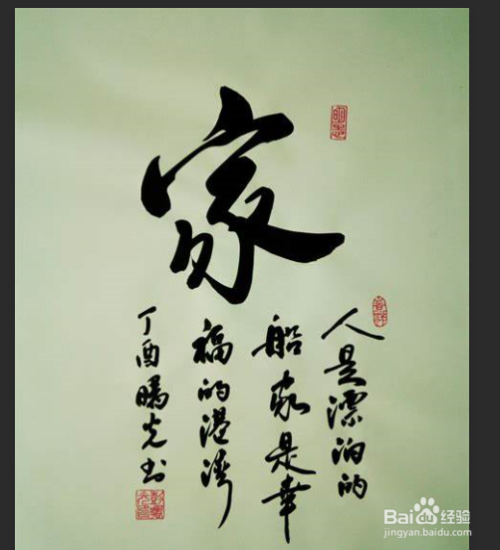 家
人是漂泊的
船家是幸
福的港湾
丁酉晓光书
Baidu经验
jingyan.baidu.com